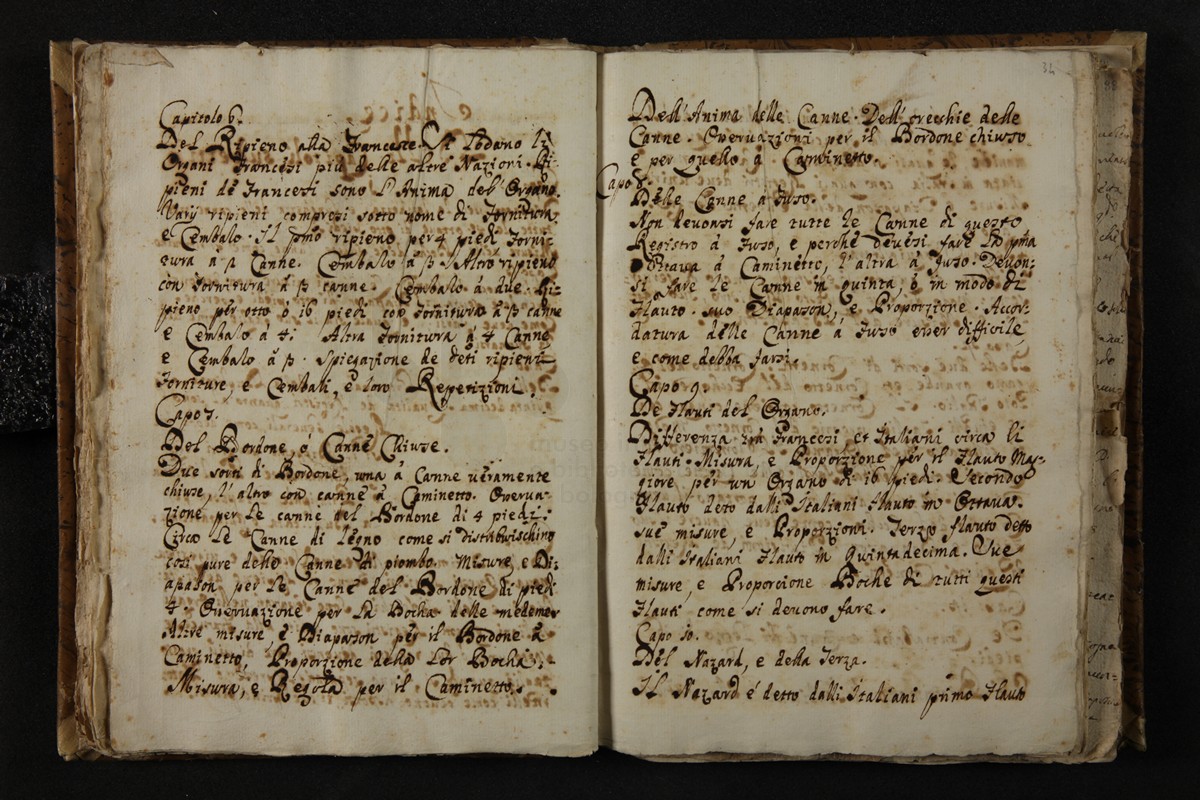 Capitolo 6.
Del Ripieno alla Francese. Si lodano li
Organi Francesi più delle altre Nazioni. Ri-
pieni de Francesi sono l'Anima del Organo.
Varij ripieni compresi sotto nome di Fornitura,
e Cembalo. Il pmo ripieno per 4 piedi Forni-
tura a 2 Canne. Cembalo à 3. Altro ripieno
con fornitura à 3 canne. Cembalo à due. Ri-
pieno per otto ò 16 piedi con Fornitura à 3 canne
e Cembalo à 4. Altra Fornitura à 4 Canne
e Cembalo à 3. Spiegazione de deti ripieni
Forniture, e Cembali, e loro Repetizioni.
Capo 7.
Del Bordone, ó Canne Chiuse.
Due sorti di Bordone, una à Canne veramente
chiuse, l'altro con canne à Caminetto. Overua-
zione per le canne del Bordone di 4 piedi.
Circa le Canne di legno come si distribuischino
così pure delle Canne di piombo. Misure, e Di-
apason per le Canne del Bordone di piedi
4. Overuazione per la Bocha delle medeme
Altre misure, e Diapason per il Bordone à
Caminetto, Proporzione della lor Bocha,
Misura, e Regola per il Caminetto.
34
Dell'Anima delle Canne. Dell'orecchie delle
Canne. Overuazioni per il Bordone chiuso
e per quello à Caminetto.
Capo 8.
Delle Canne à Fuso.
Non devonsi fare tutte le Canne di questo
Registro à Fuso, e perche devesi fare la pma
Ottava à Caminetto, l'altra à Fuso. Devon-
si fare le Canne in quinta, ò in modo di
Flauto. suo Diapason, e Proporzione. Accor-
datura delle Canne à Fuso esser difficile,
e come debba farsi.
Capo 9.
De Flauti del Organo.
Differenza trà Francesi, et Italiani circa li
Flauti. Misura, e Proporzione per il Flauto Mag-
giore per un Organo di 16 piedi. Secondo
Flauto deto dalli Italiani flauto in Ottava.
sue misure, e Proporzioni. Terzo flauto detto
dalli Italiani Flauto in Quintadecima. Sue
misure, e Proporcione Boche di tutti questi
Flauti come si devono fare.
Capo 10.
Del Nazard, e della Terza.
Il Nazard é detto dalli Italiani primo Flauto